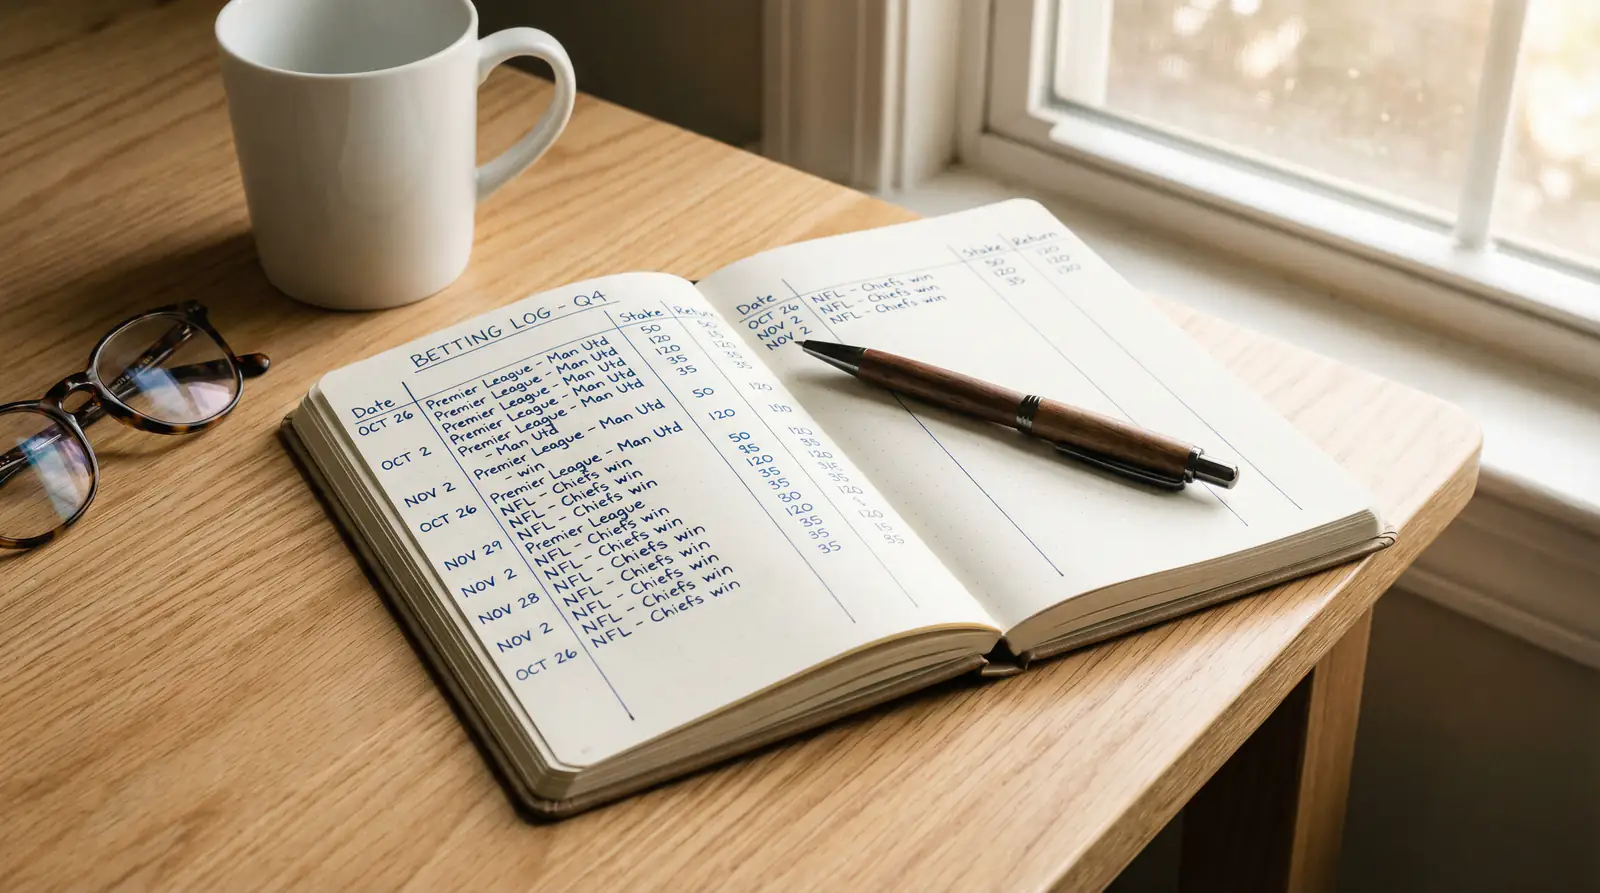 BETTING LOG - Q4
Date Stake Return
OCT 26 Premier League - Man Utd 50 50
Premier League - Man Utd 120 15
Premier League - Man Utd 120 120
Premier League - Man Utd 35 35
OCT 2 - Man Utd 35 35
Premier League - Man Utd 50 120
- win
NOV 2 Premier League - Man Utd 120
NFL - Chiefs win 50 120
OCT 26 NFL - Chiefs win 35
NFL - Chiefs win 120 120
Premier League 35 35
NOV 29 NFL - Chiefs win 35 120
NFL - Chiefs win
NOV 2 NFL - Chiefs win 120 120
NFL - Chiefs win 35 15
NOV 28 NFL - Chiefs win 35 35
NOV 2
OCT 26
Date Stake Return
OCT 26 NFL - Chiefs win 50 120
NOV 2 NFL - Chiefs win 120 120
NOV 2 NFL - Chiefs win 35 120